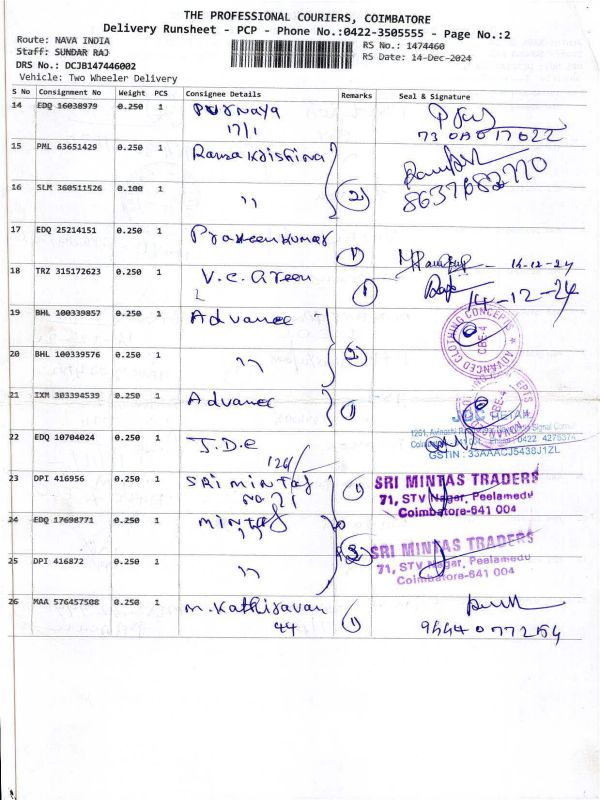 THE PROFESSIONAL COURIERS, COIMBATORE
Delivery Runsheet - PCP - Phone No.:0422-3505555 - Page No.:2
Route: NAVA INDIA
Staff: SUNDAR RAJ
DRS No.: DCJB147446002
Vehicle: Two Wheeler Delivery
RS No.: 1474460
RS Date: 14-Dec-2024
S No Consignment No Weight PCS Consignee Details Remarks Seal & Signature
14 EDQ 16038979 0.250 1
17/1
15 PML 63651429 0.250 1 Ramakrishna
16 SLM 360511526 0.100 1 ,, 2
17 EDQ 25214151 0.250 1 Praveenkumar 1 14-12-24
18 TRZ 315172623 0.250 1 V.C. 1 14-12-24
19 BHL 100339857 0.250 1 Advance
20 BHL 100339576 0.250 1 ,, 2
ADVANCED CLOTHING CONCEPTS
CBE-4
21 IXM 303394539 0.250 1 Advance 1
CBE-4
22 EDQ 10704024 0.250 1 J.D.E
126/
0422 4275374
GSTIN : 33AAACJ5438J1ZL
23 DPI 416956 0.250 1 SRi mintas 1
No. 71
SRI MINTAS TRADERS
71, STV Nagar, Peelamedu
Coimbatore-641 004
24 EDQ 17698771 0.250 1 mintas
,,
SRI MINTAS TRADERS
71, STV Nagar, Peelamedu
Coimbatore-641 004
25 DPI 416872 0.250 1 ,,
26 MAA 576457508 0.250 1 M. Kathiravan 1
44